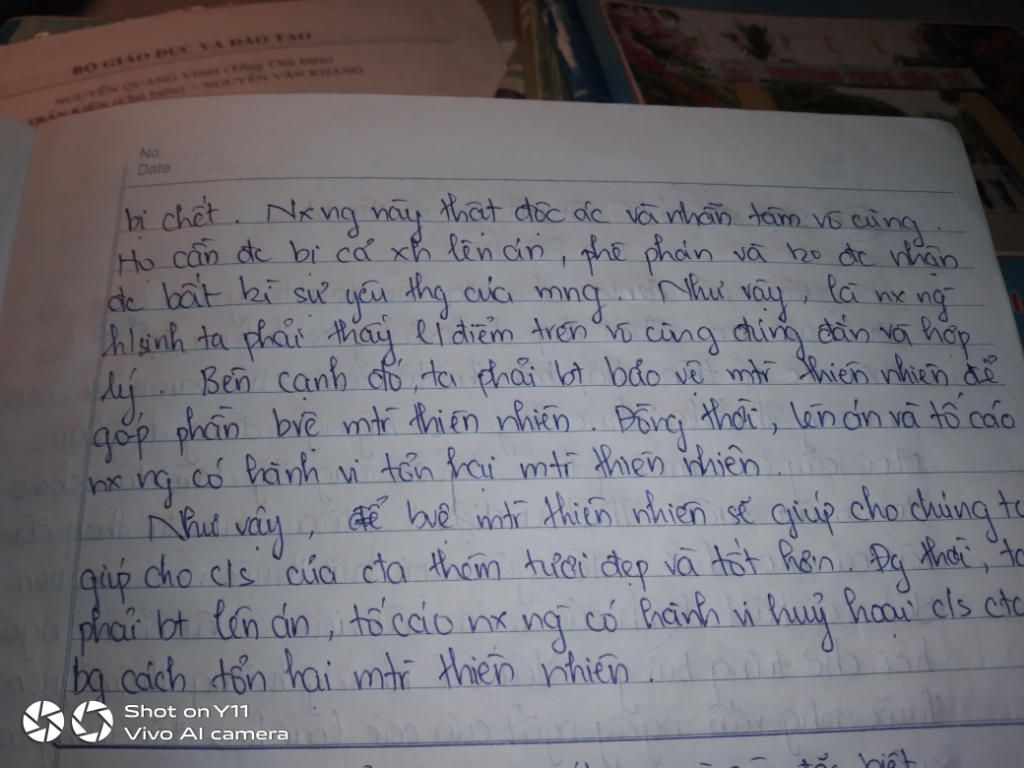 BỘ GIÁO DỤC VÀ ĐÀO TẠO
NGUYỄN QUANG VINH (Tổng Chủ biên)
TRẦN KIÊN (Chủ biên) – NGUYỄN VĂN KHANG
No.
Date
bị chết. Nx ng này thật độc ác và nhẫn tâm vô cùng.
Họ cần đc bị cả xh lên án, phê phán và ko đc nhận
đc bất kì sự yêu thg của mng. Như vậy, là nx ng
h/sinh ta phải thấy q/điểm trên vô cùng đúng đắn và hợp
lý. Bên cạnh đó, ta phải bt bảo vệ mtr thiên nhiên để
góp phần bvệ mtr thiên nhiên. Đồng thời, lên án và tố cáo
nx ng có hành vi tổn hại mtr thiên nhiên.
Như vậy, để bvệ mtr thiên nhiên sẽ giúp cho chúng ta
giúp cho c/s của cta thêm tươi đẹp và tốt hơn. Đg thời, ta
phải bt lên án, tố cáo nx ng có hành vi huỷ hoại c/s cta
bg cách tổn hại mtr thiên nhiên.
Shot on Y11
Vivo AI camera